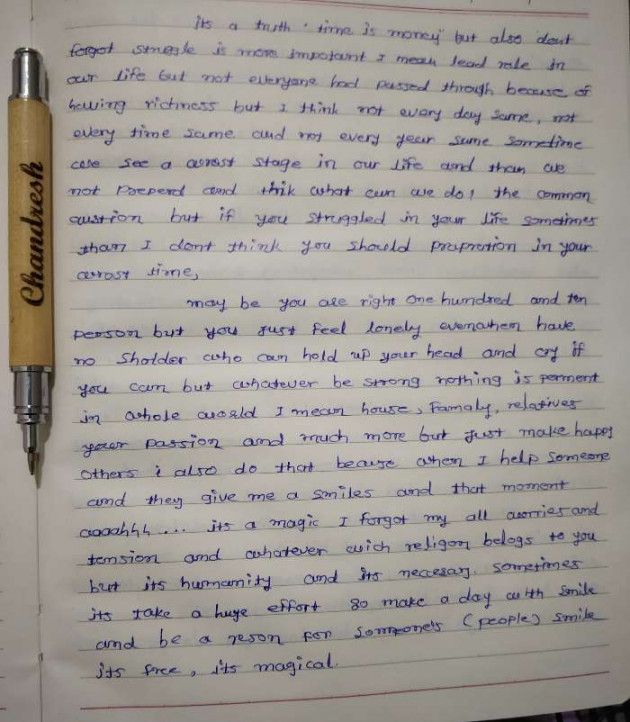 Chandresh
its a truth 'time is money' but also dont
forgot struggle is more impotant I mean lead role in
our life but not everyone had passed through because of
having richness but I think not every day same, not
every time same and not every year same sometime
we see a worst stage in our life and than we
not preperd and thik what can we do! the common
qustion but if you struggled in your life sometimes
than I dont think you should prepretion in your
worst time,
may be you are right one hundred and ten
person but you just feel lonely evenwhen have
no sholder who can hold up your head and cry if
you can but whatever be strong nothing is perment
in whole world I mean house, Famaly, relatives
your passion and much more but just make happy
others i also do that beause when I help someone
and they give me a smiles and that moment
aaaahhh... its a magic I forgot my all worries and
tension and whatever wich religon belogs to you
but its humamity and its neccesary. sometimes
its take a huge effort so make a day with smile
and be a reson for someone's (people) smile
its free, its magical.